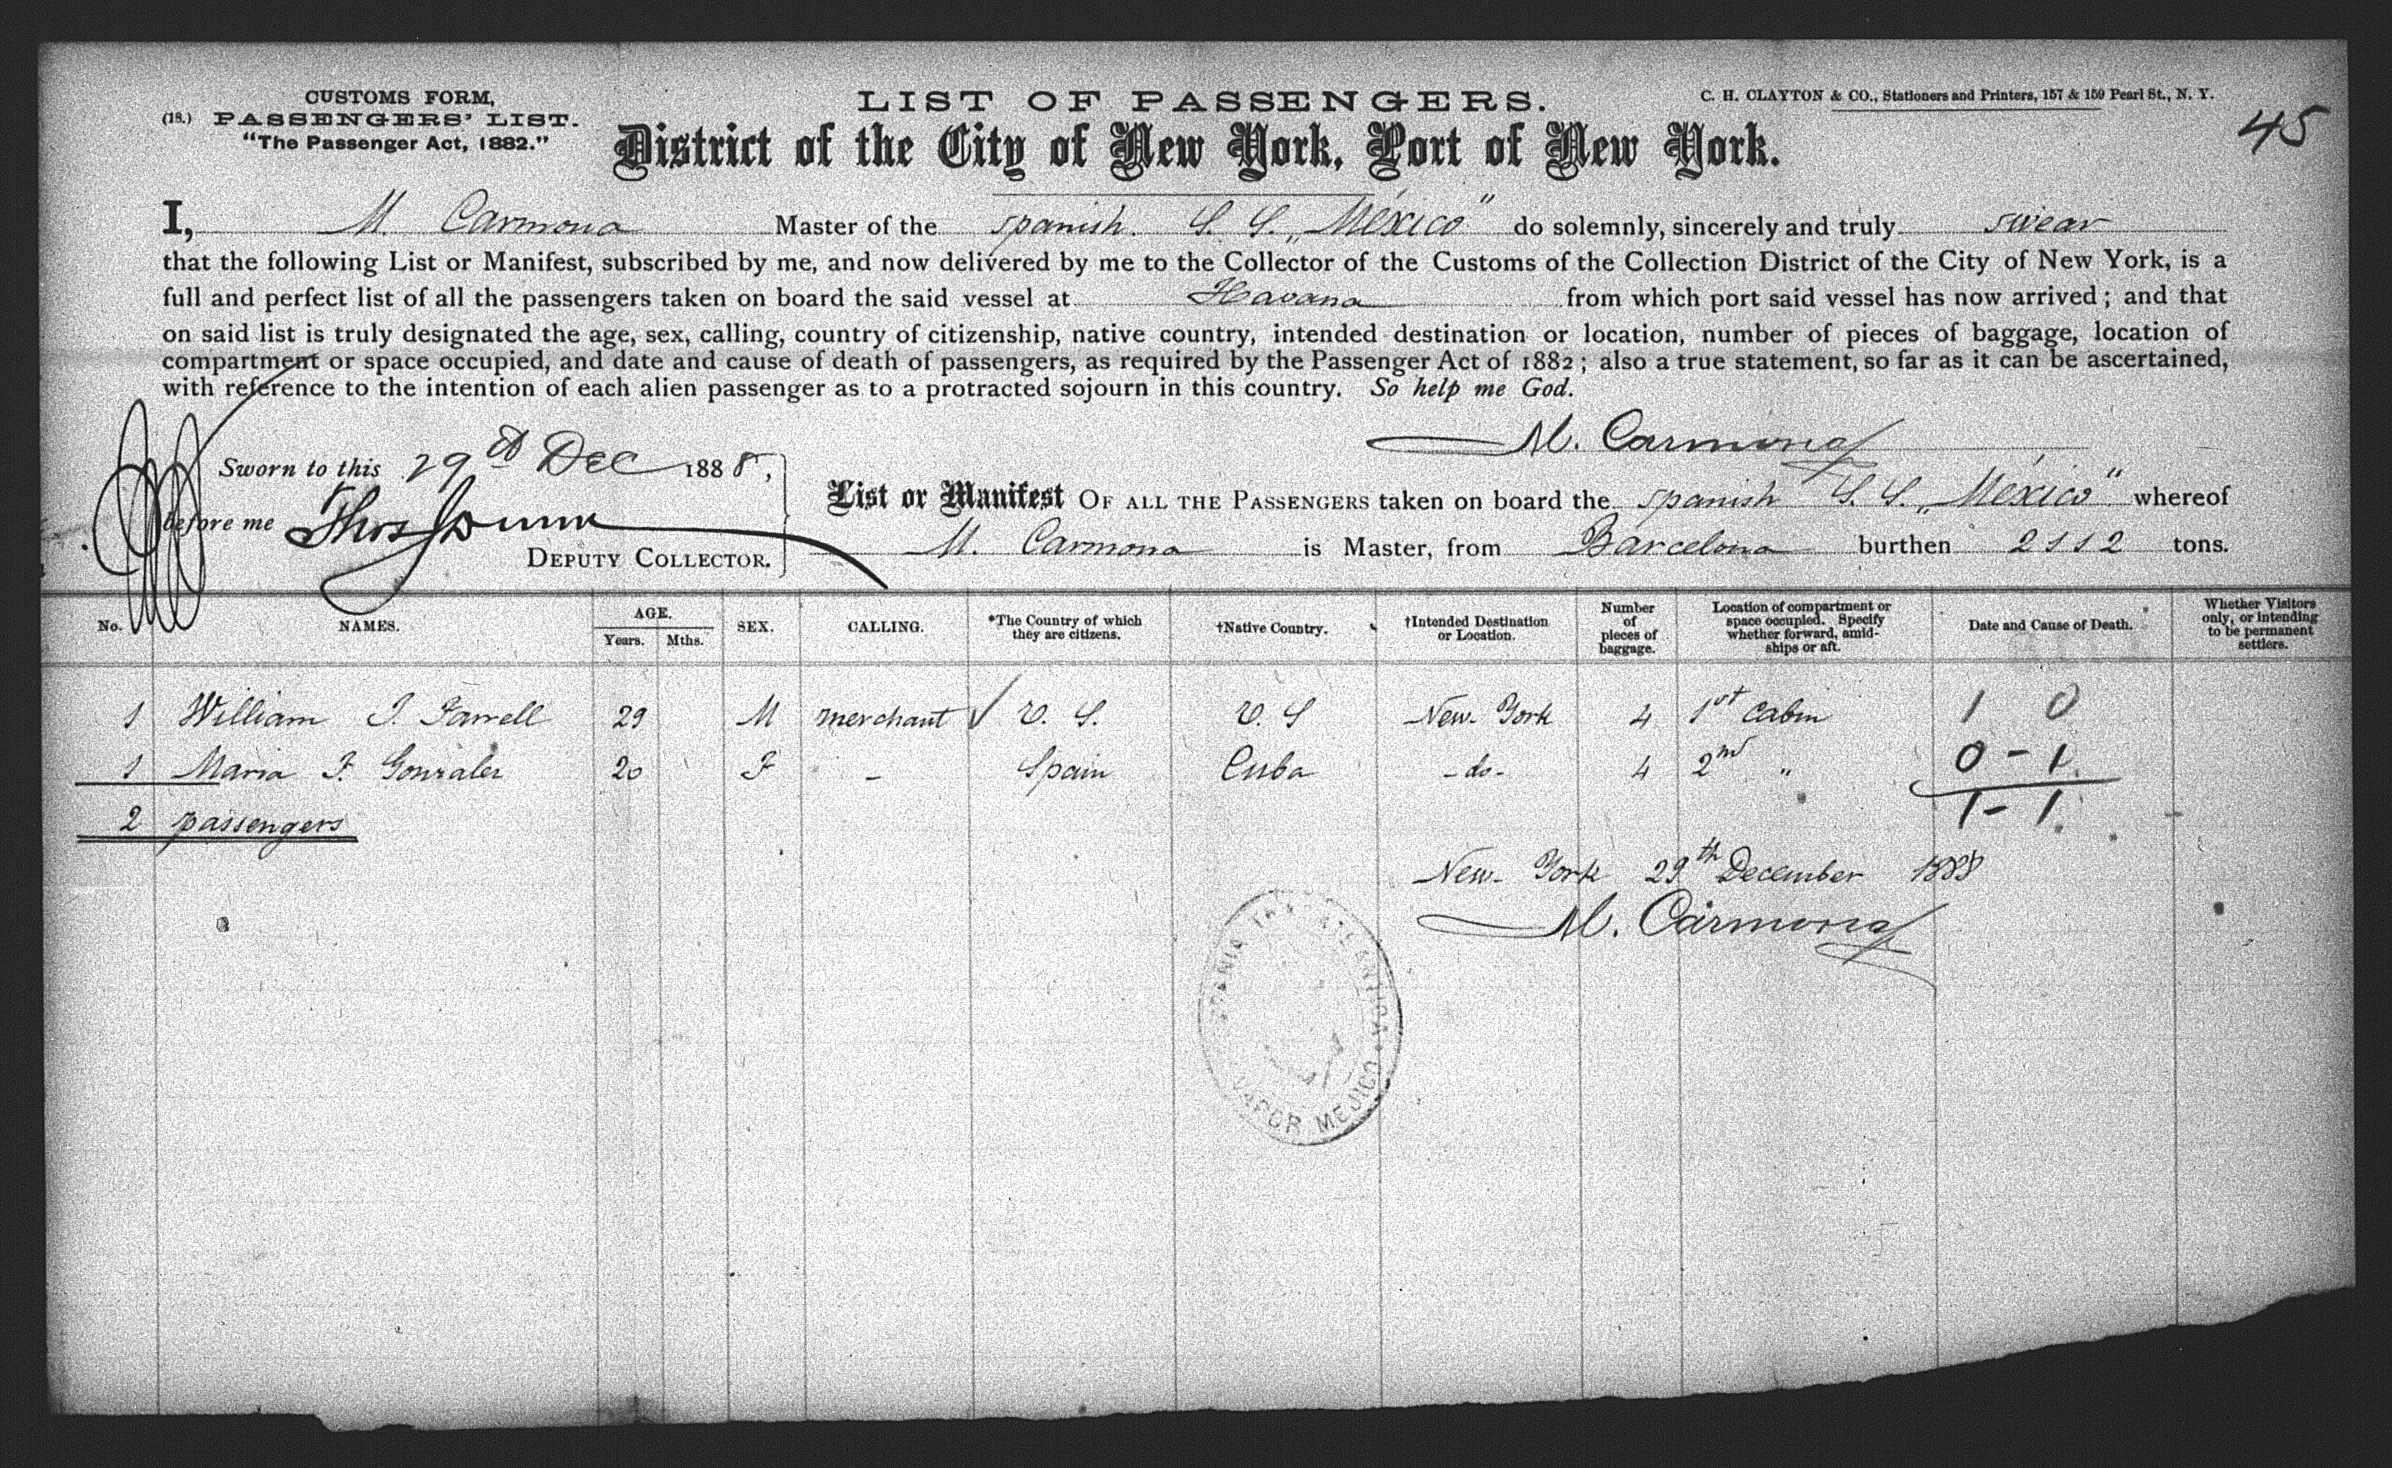 CUSTOMS FORM,
(18.) PASSENGERS' LIST.
"The Passenger Act, 1882."
LIST OF PASSENGERS.
C. H. CLAYTON & CO., Stationers and Printers, 157 & 159 Pearl St., N. Y.
45
District of the City of New York, Port of New York.
I, M. Carmona Master of the spanish S. S. „México" do solemnly, sincerely and truly swear
that the following List or Manifest, subscribed by me, and now delivered by me to the Collector of the Customs of the Collection District of the City of New York, is a
full and perfect list of all the passengers taken on board the said vessel at Havana from which port said vessel has now arrived; and that
on said list is truly designated the age, sex, calling, country of citizenship, native country, intended destination or location, number of pieces of baggage, location of
compartment or space occupied, and date and cause of death of passengers, as required by the Passenger Act of 1882; also a true statement, so far as it can be ascertained,
with reference to the intention of each alien passenger as to a protracted sojourn in this country. So help me God.
M. Carmona
Sworn to this 29 Dec 1888,
before me Thos Dunn
DEPUTY COLLECTOR.
List or Manifest OF ALL THE PASSENGERS taken on board the spanish S. S. „México" whereof
M. Carmona is Master, from Barcelona burthen 2112 tons.
No. NAMES. AGE. Years. Mths. SEX. CALLING. *The Country of which they are citizens. †Native Country. †Intended Destination or Location. Number of pieces of baggage. Location of compartment or space occupied. Specify whether forward, amidships or aft. Date and Cause of Death. Whether Visitors only, or intending to be permanent settlers.
1 William J. Farrell 29 M merchant ✓ U. S. U. S New-York 4 1st cabin 1 0
1 Maria F. Gonzalez 20 F - Spain Cuba -do- 4 2nd " 0-1
2 passengers 1-1
New-York 29th December 1888
M. Carmona
TRASATLANTICA
VAPOR MEJICO